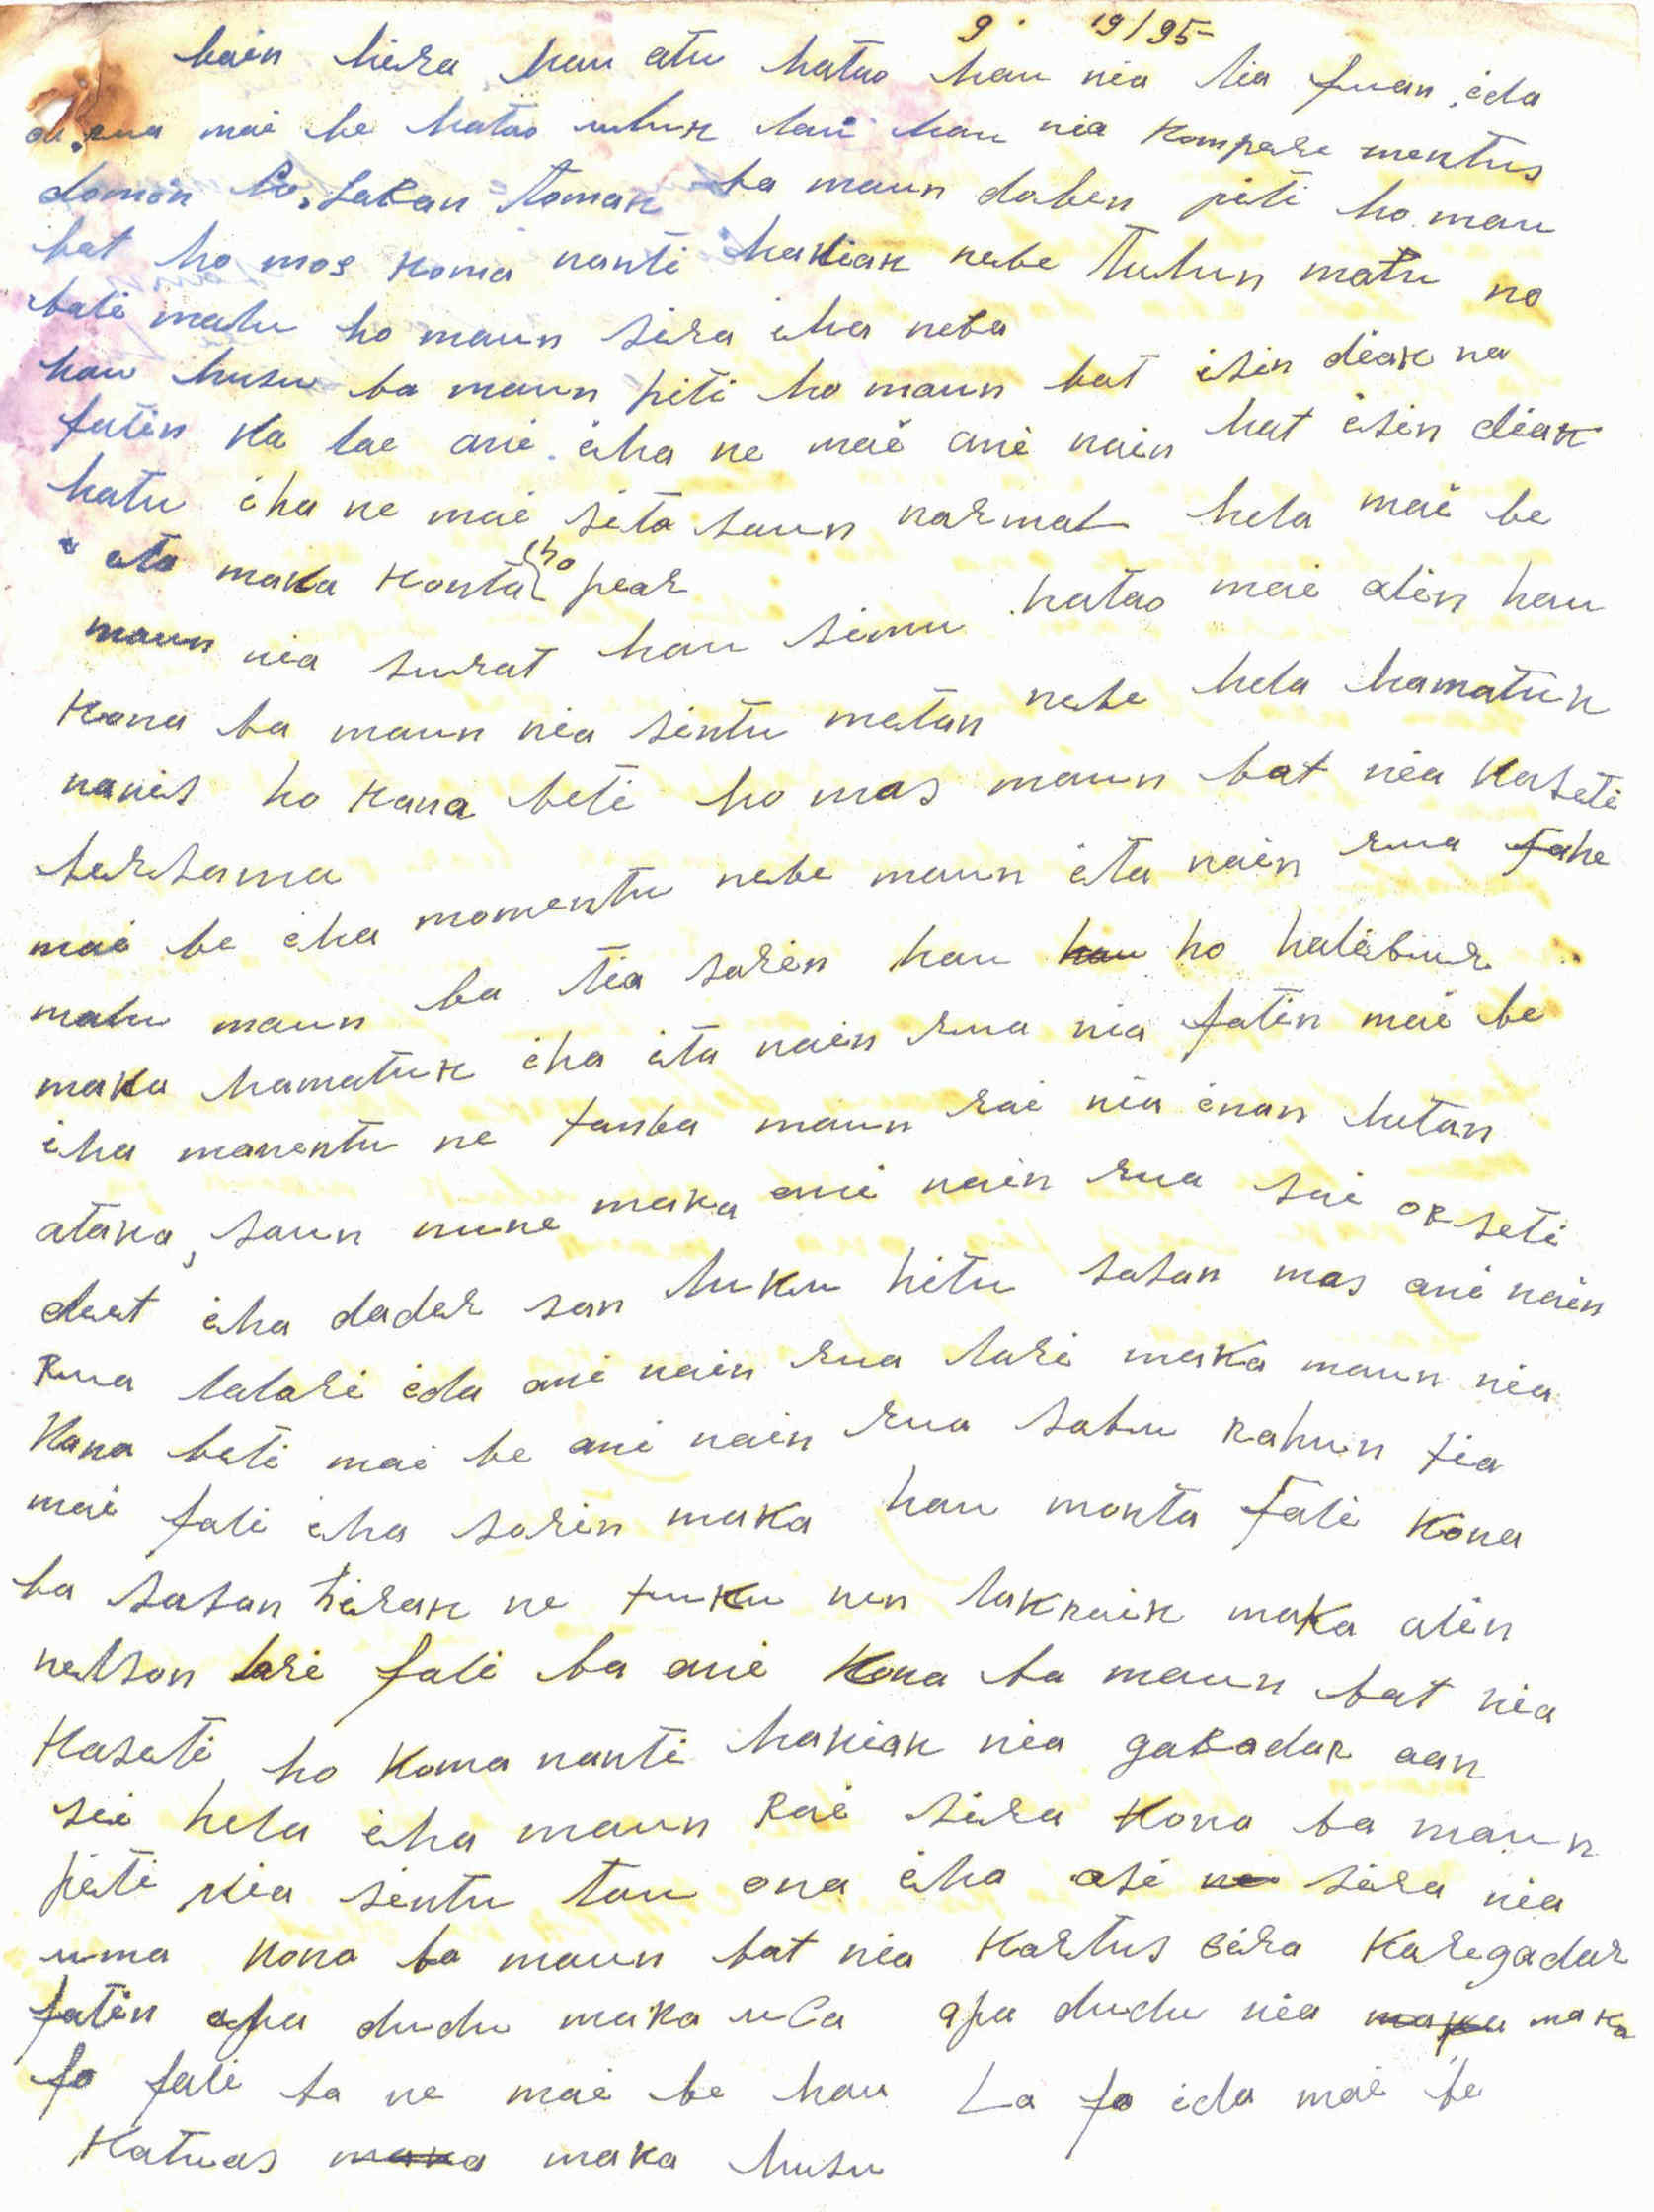 9. 19/95
bain hira hau atu hatao hau nia lia fuan ida
rua mai be hatao uluk lai hau nia kompere mentus
domin bo, laran tomak ba maun doben piti ho mau
bat ho mos koma nanti hakiak nebe tulun matu no
bali malu ho maun sira iha neba
hau husu ba maun piti ho maun bat isin diak na
fatin ka lae ami iha ne mai ami nain hat isin diak
hatu iha ne mai sita saun narmal hela mai be
ita maka konta ho pear
maun nia surat hau simu hatao mai alin hau
kona ba maun nia sintu metan nebe hela hamatuk
nanis ho kana beti ho mas maun bat nia kaseti
bersama
mai be iha momentu nebe maun ita nain rua fahe
malu maun ba tia sorin hau ho halibur
maka hamatuk iha ita nain rua nia fatin mai be
iha manentu ne tanba maun rai nia inan hetan
ataka, saun nune maka ami nain rua sai or seti
deet iha dader san tuku hitu sasan mas ami nain
rua lalari ida ami nain rua lari maka maun nia
kana beti mai be ami nain rua sabu rahun tia
mai fali iha sorin maka hau monta fali kona
ba sasan hirak ne tuku nen lakraik maka alin
nelson lari fali ba ami kona ba maun bat nia
kaseti ho koma nanti hakiak nia gabadar aan
sei hela iha maun rai sira kona ba maun
piti nia sintu tau ona iha asi sira nia
uma kona ba maun bat nia kartus sira karegadar
fatin apa dudu maka ula apa dudu nia maka
fo fali ba ne mai be hau La fo ida mai be
Katuas maka husu